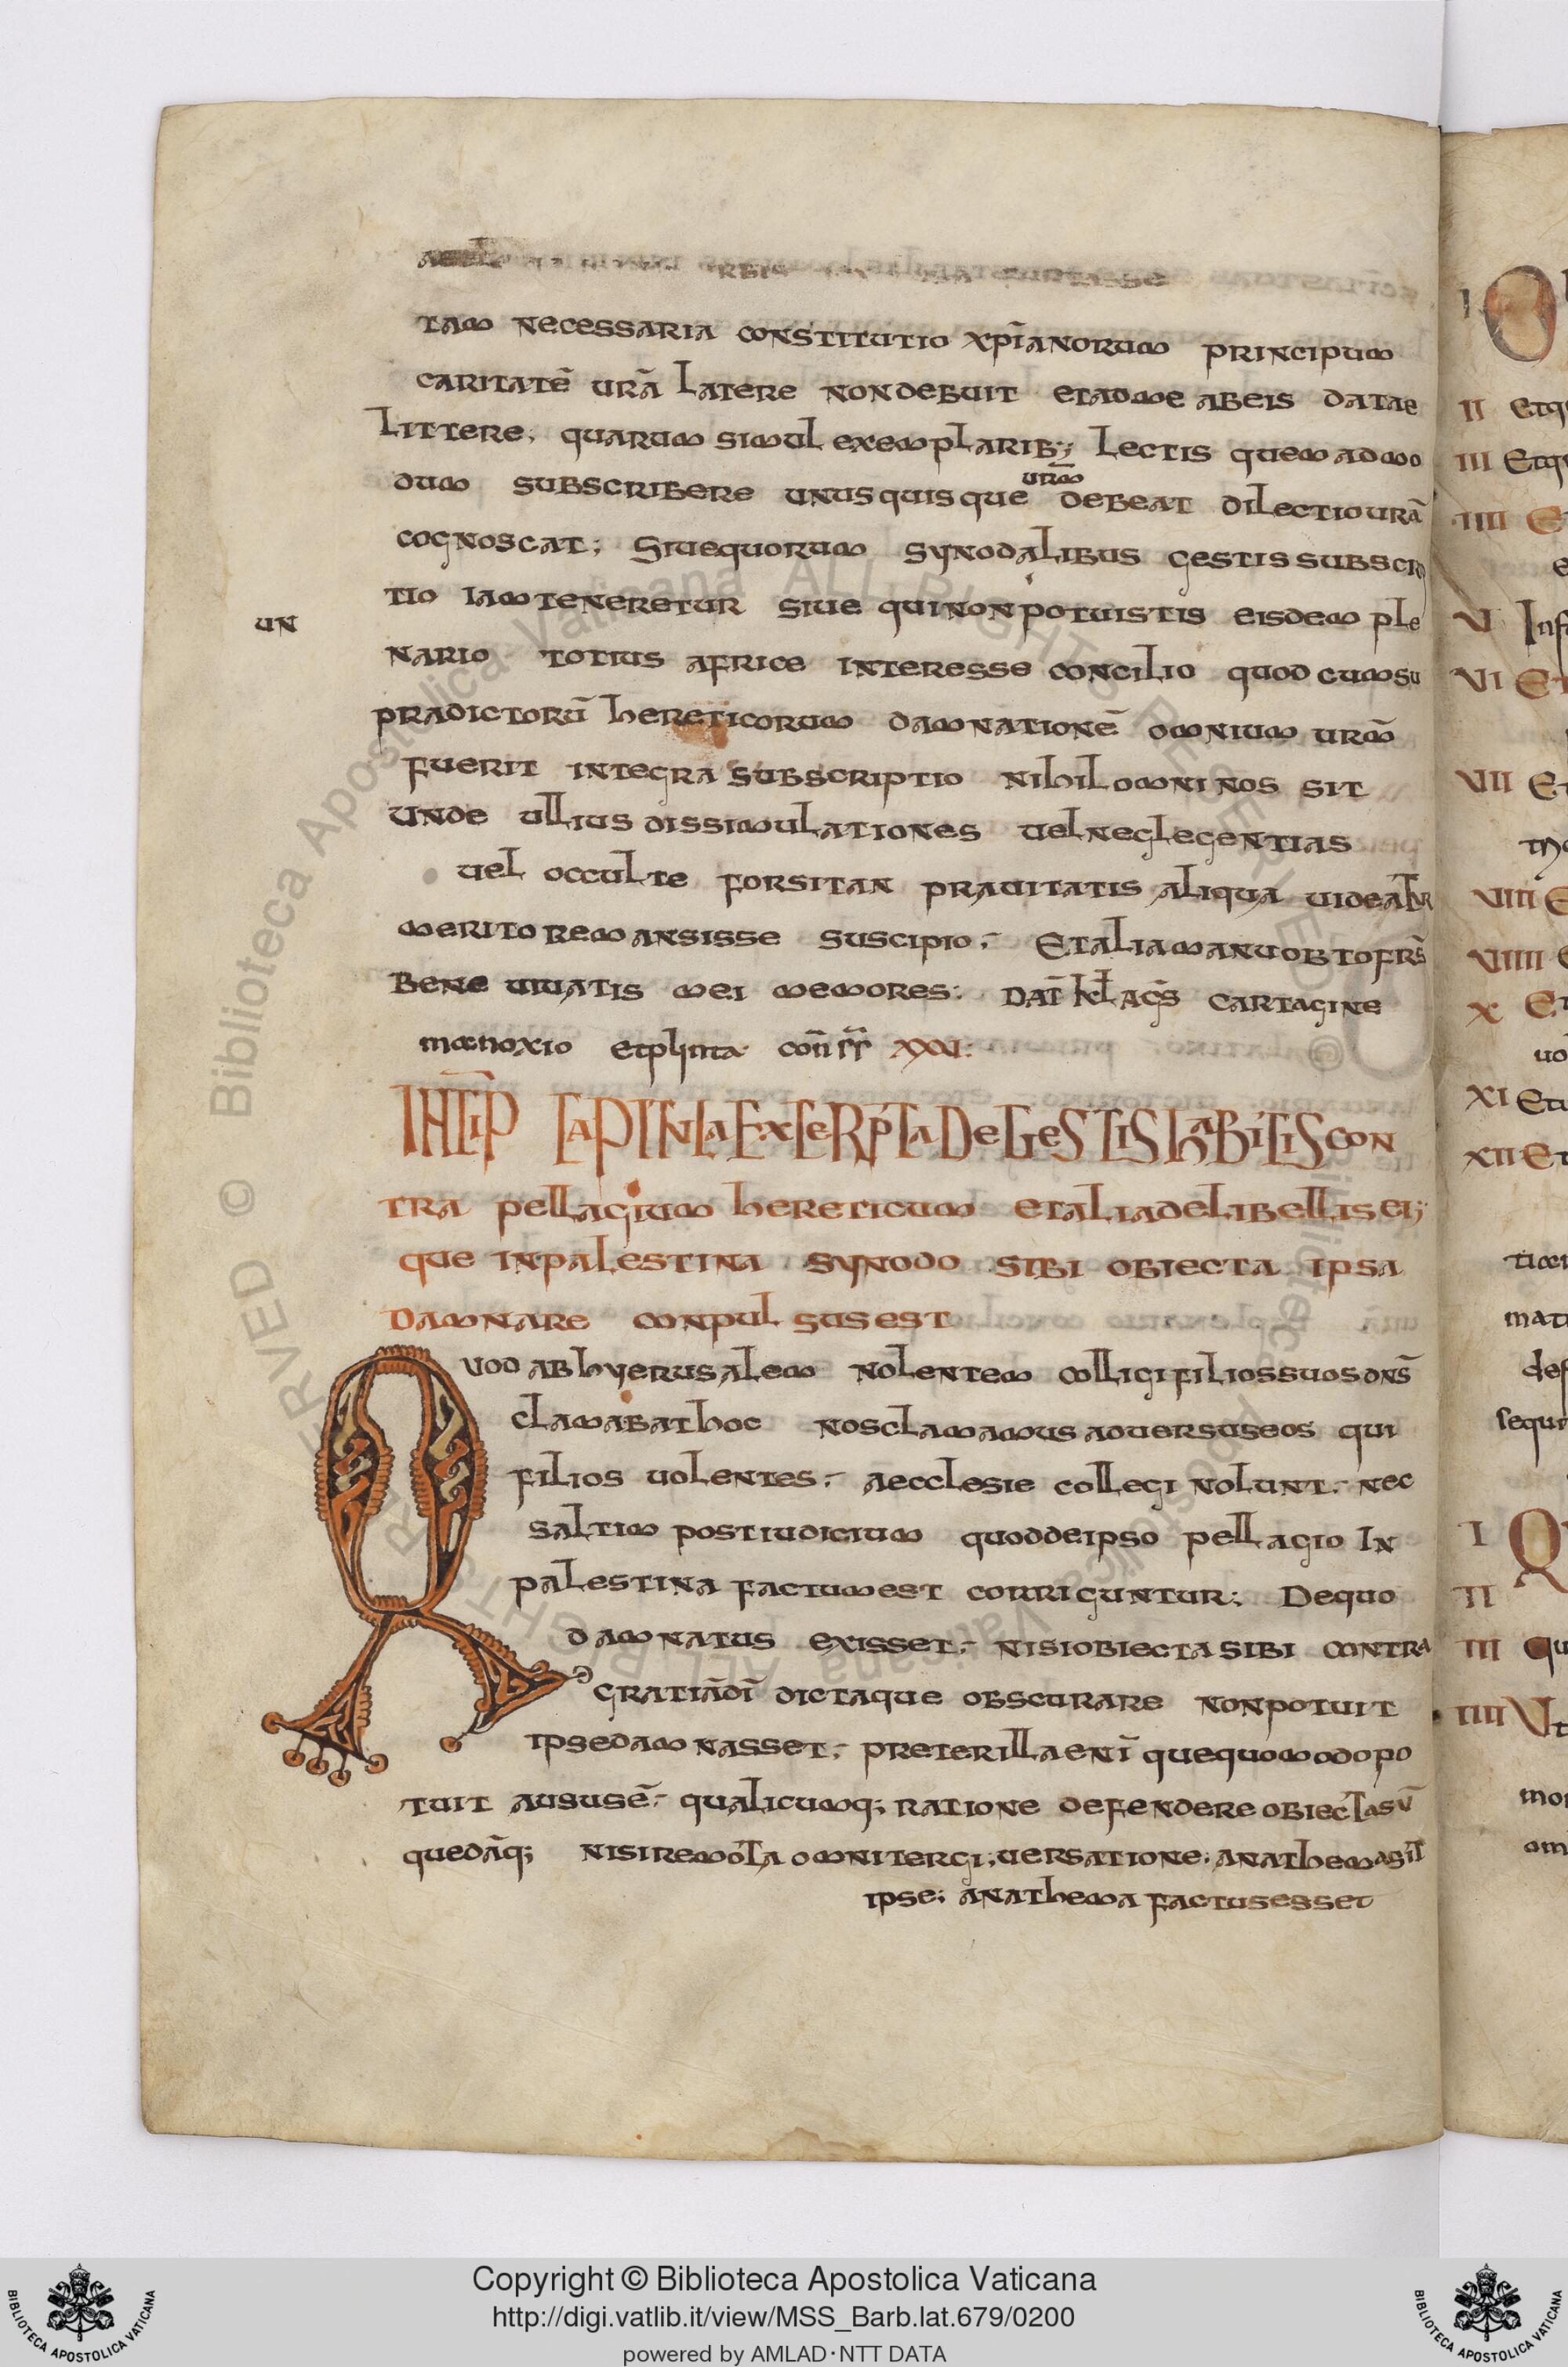 tam necessaria constitutio xp̄ianorum principum
caritatē ūrā latere non debuit et ad me ab eis datae
littere, quarum simul exemplarib; lectis quem ad mo
dum subscribere unus quis que ūrm debeat dilectio urā
cognoscat; siue quorum synodalibus gestis subscrip
tio iam teneretur siue qui non potuistis eisdem ple
un
nario totius africe interesse concilio quod cum su
pradictorū hereticorum damnationē omnium urm̄
fuerit integra subscriptio nihil omni nos sit
unde ullius dissimulationes uel neglegentias
uel occulte forsitan prauitatis aliqua uideatur
merito remansisse suscipio; et alia manu obto frs̄
bene uiuatis mei memores: dat̄ kl̄ ags̄ cartagine
monoxio et plinta con̄ss̄ xxvi:
INCIP̄ CAPITULA EXCERPTA DE GESTIS HABITIS CON
tra pellagium hereticum et alia de libellis ei;
que in palestina synodo sibi obiecta ipsa
damnare conpulsus est
Quod ab hyerusalem nolentem colligi filios suos dn̄s
clamabat hoc nos clamamus aduersus eos qui
filios uolentes; aecclesie collegi nolunt; nec
saltim post iudicium quod de ipso pellagio in
palestina factum est corriguntur; De quo
damnatus exisset; nisi obiecta sibi contra
gratiā dī dictaque obscurare non potuit
ipse damnasset; preter illa enī que quomodo po
tuit ausus ē; qualicumq; ratione defendere obiecta sū
quedāq; nisi remota omni tergi;uersatione; anathemasit
ipse; anathema factus esset
I
II Etq
III Etq
IIII
V Inf
VI
VII
VIII
VIIII
X
XI
XII
I Q
II
III qu
IIII
Biblioteca Apostolica Vaticana ALL RIGHTS RESERVED ©
Copyright © Biblioteca Apostolica Vaticana
http://digi.vatlib.it/view/MSS_Barb.lat.679/0200
powered by AMLAD·NTT DATA
BIBLIOTECA APOSTOLICA VATICANA
BIBLIOTECA APOSTOLICA VATICANA